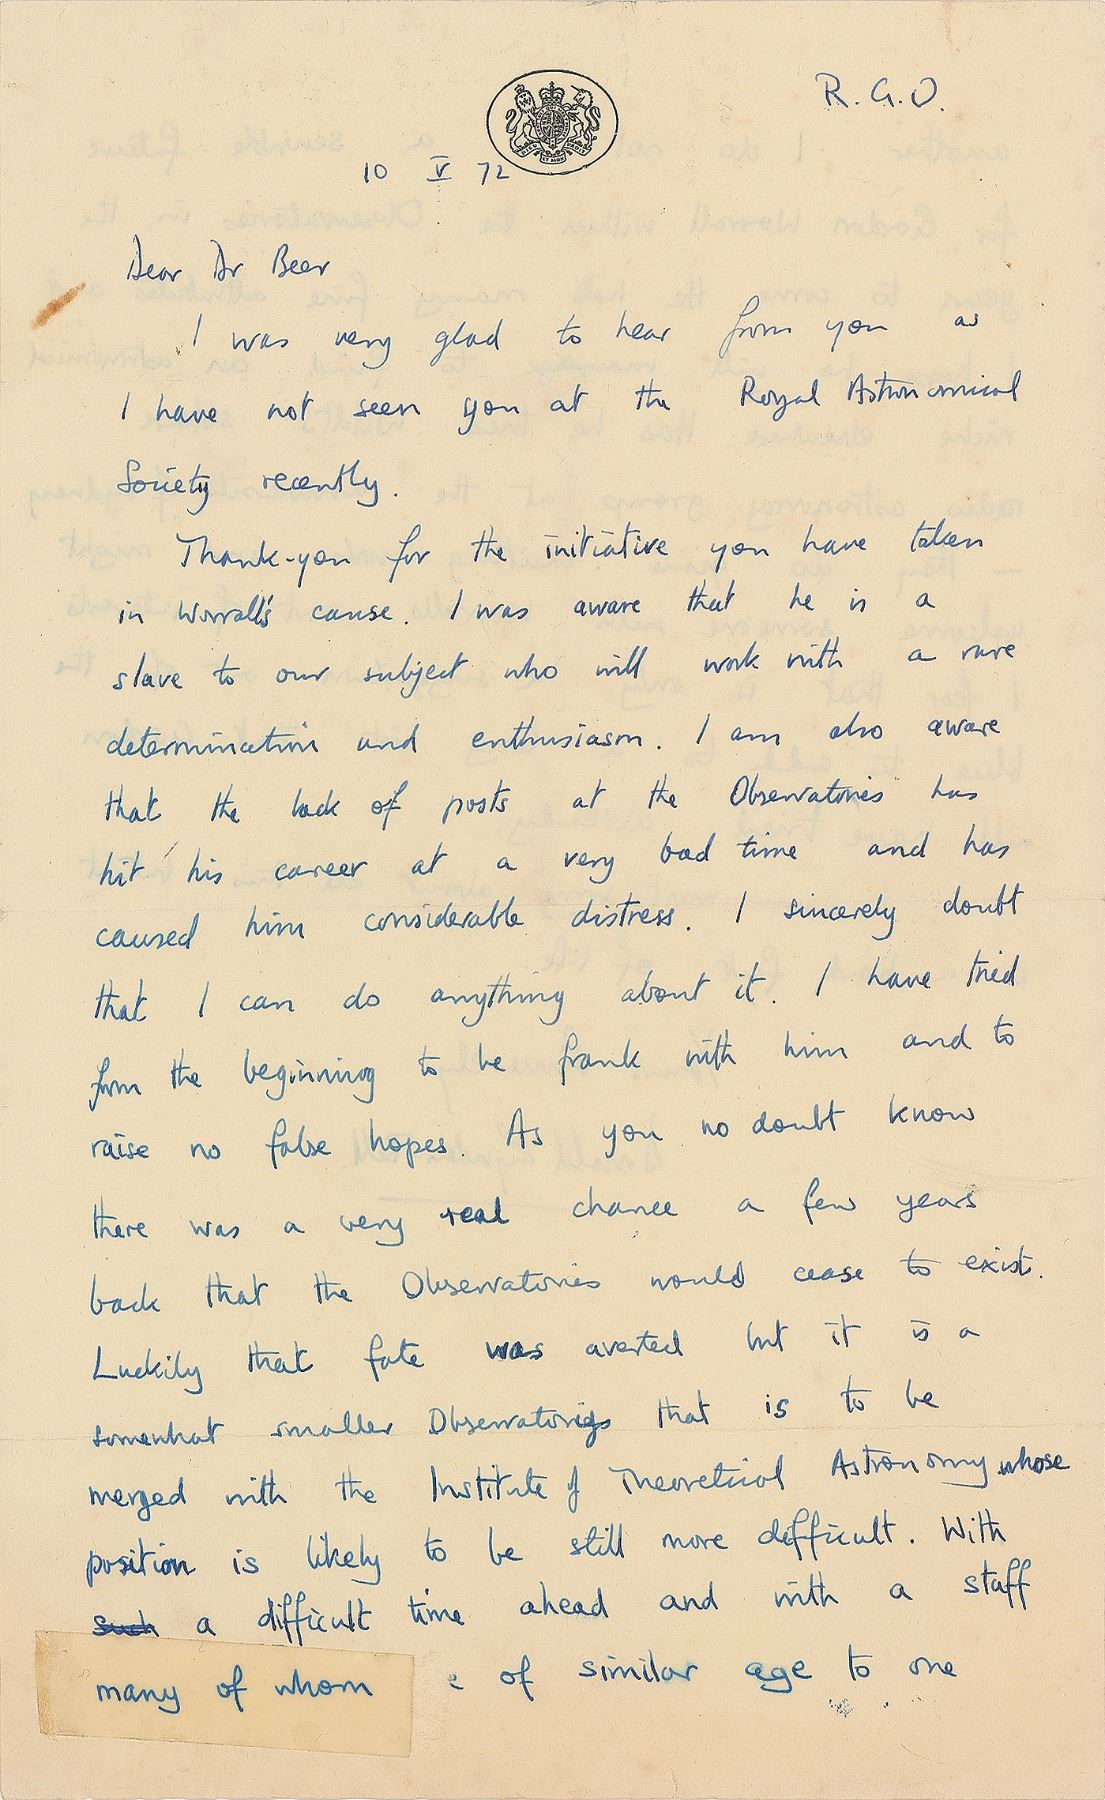 R. G. O.
10 V 72
Dear Dr Beer
I was very glad to hear from you as
I have not seen you at the Royal Astronomical
Society recently.
Thank-you for the initiative you have taken
in Worrall's cause. I was aware that he is a
slave to our subject who will work with a rare
determination and enthusiasm. I am also aware
that the lack of posts at the Observatories has
hit his career at a very bad time and has
caused him considerable distress. I sincerely doubt
that I can do anything about it. I have tried
from the beginning to be frank with him and to
raise no false hopes. As you no doubt know
there was a very real chance a few years
back that the Observatories would cease to exist.
Luckily that fate was averted but it is a
somewhat smaller Observatories that is to be
merged with the Institute of Theoretical Astronomy whose
position is likely to be still more difficult. With
such a difficult time ahead and with a staff
many of whom e of similar age to one